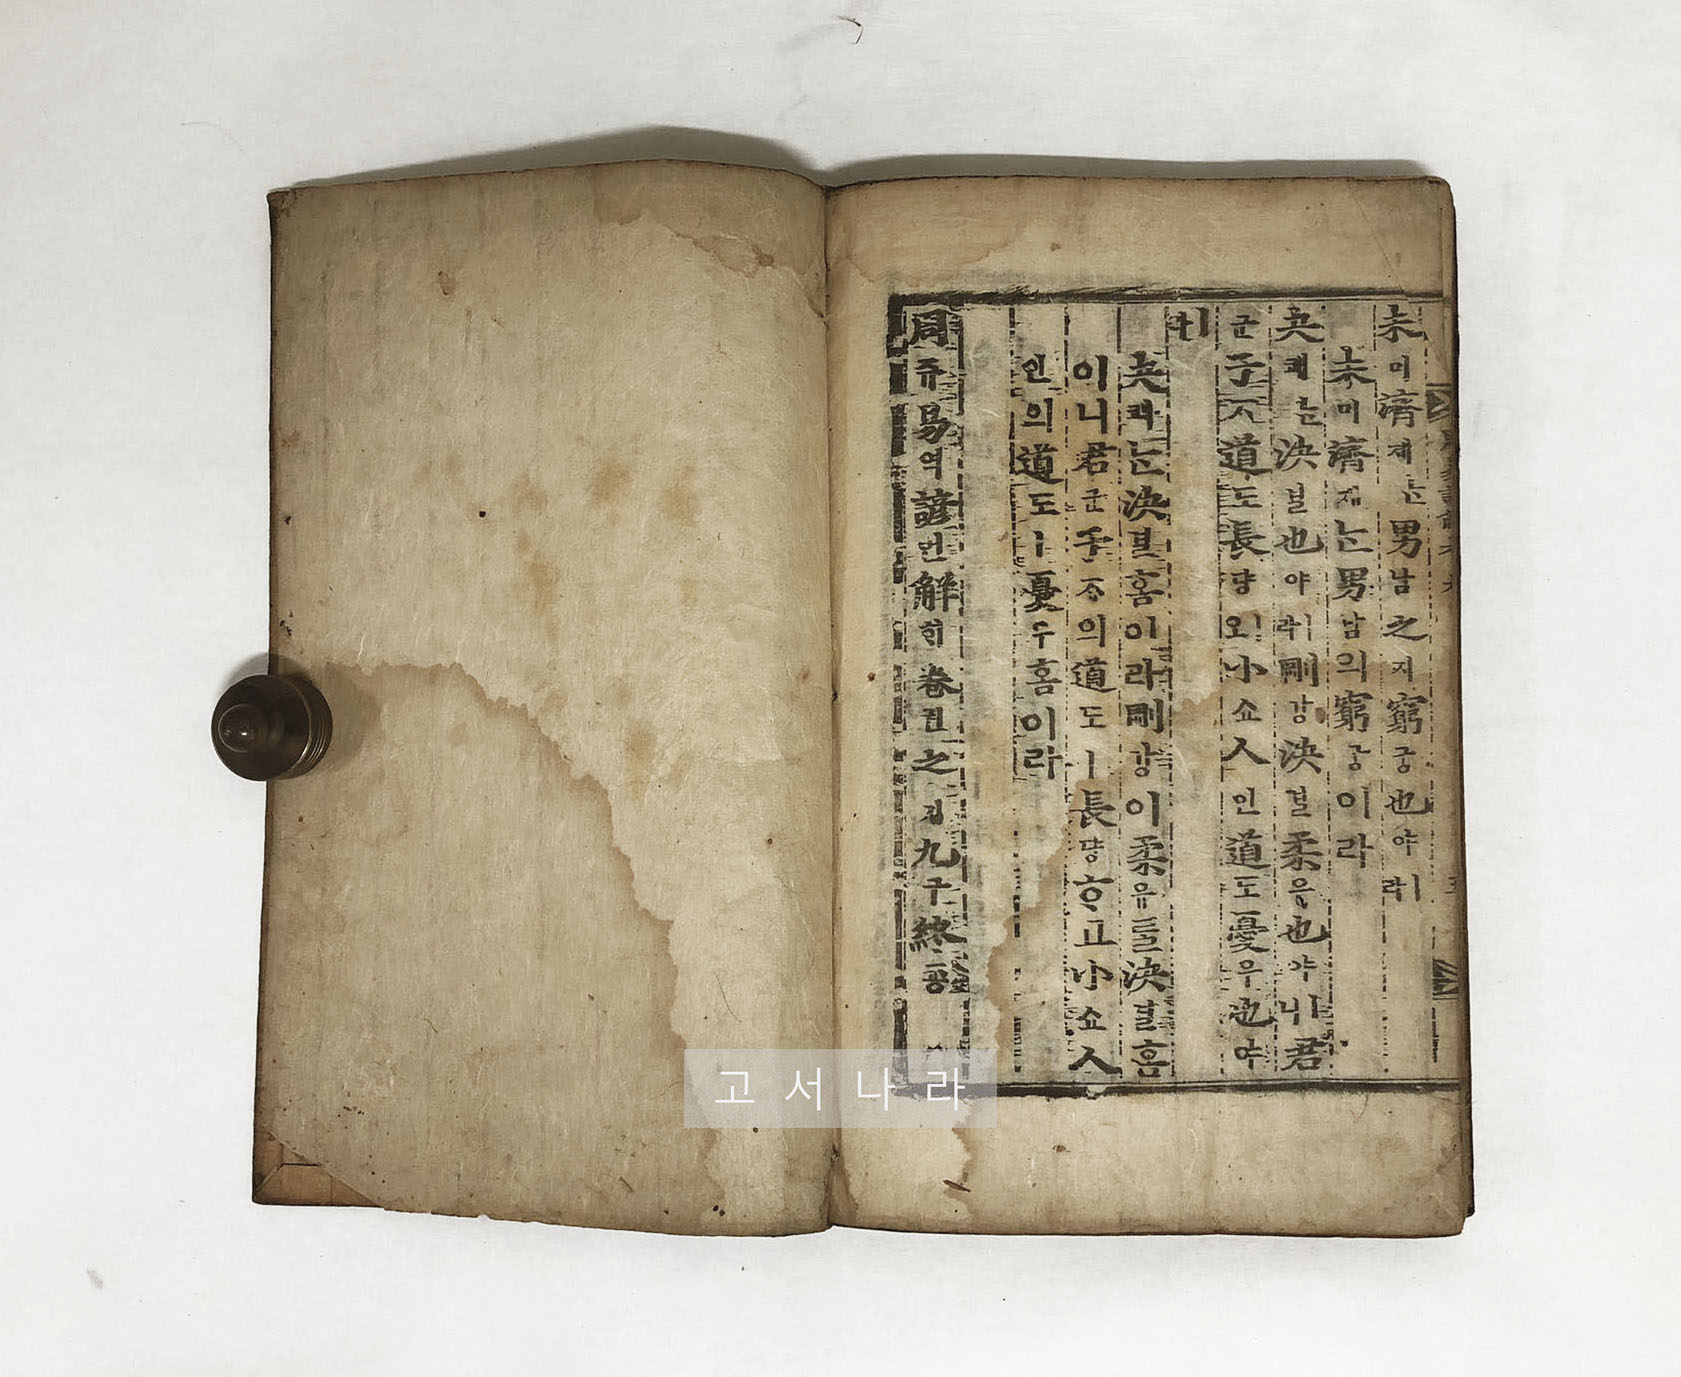 未미濟졔ᄂᆞᆫ男남之지窮궁也야ㅣ라
未미濟졔ᄂᆞᆫ男남의窮궁이라
夬쾌ᄂᆞᆫ決결也야ㅣ라剛강決결柔유也야ㅣ니君
군子ᄌᆞ道도長댱ㅣ오小쇼人인道도憂우也야
ㅣ라
夬쾌ᄂᆞᆫ決결홈이라剛강이柔유를決결홈
이니君군子ᄌᆞ의道도ㅣ長댱ᄒᆞ고小쇼人
인의道도ㅣ憂우홈이라
周쥬易역諺언解ᄒᆡ卷권之지九구終죵
고서나라